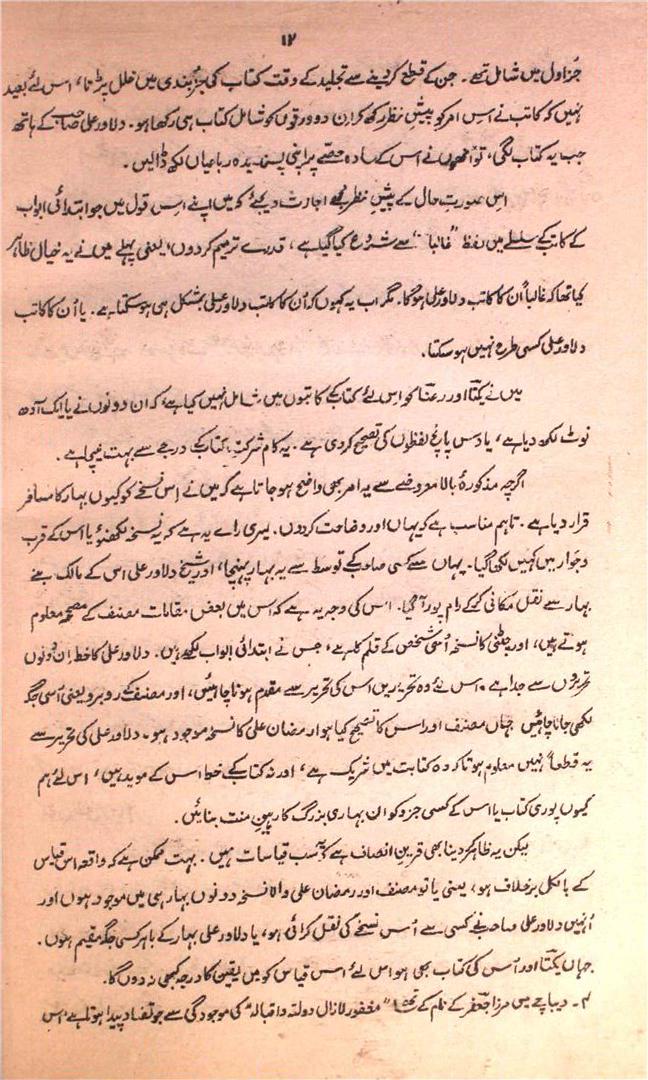 ۱۲
جُز اول میں شامل تھے۔ جن کے قطع کر دینے سے تجلید کے وقت کتاب کی جز بندی میں خلل پڑتا، اس لئے بعید
نہیں کہ کاتب نے اس امر کو پیشِ نظر رکھ کر ان دو ورقوں کو شامل کتاب ہی رکھا ہو۔ دلاور علی صاحب کے ہاتھ
جب یہ کتاب لگی، تو انھوں نے اس کے سادہ حصے پر اپنی پسندیدہ رباعیاں لکھ ڈالیں۔
اس صورتِ حال کے پیشِ نظر مجھے اجازت دیجئے کہ میں اپنے اس قول میں جو ابتدائی ابواب
کے کاتب کے سلسلے میں لفظ "غالباً" سے شروع کیا گیا ہے، قدرے ترمیم کردوں، یعنی پہلے میں نے یہ خیال ظاہر
کیا تھا کہ غالباً اُن کا کاتب دلاور علی ہوگا۔ مگر اب یہ کہوں کہ اُن کا کاتب دلاور علی بمشکل ہی ہوسکتا ہے۔ یا اُن کا کاتب
دلاور علی کسی طرح نہیں ہوسکتا۔
میں نے یکتا اور رعنا کو اس لئے کتاب کے کاتبوں میں شامل نہیں کیا ہے کہ ان دونوں نے یا ایک آدھ
نوٹ لکھ دیا ہے، یا دس پانچ لفظوں کی تصحیح کردی ہے۔ یہ کام شرکتِ کتابت کے درجے سے بہت نیچا ہے۔
اگرچہ مذکورۂ بالا معروضے سے یہ امر بھی واضح ہوجاتا ہے کہ میں نے اس نسخے کو کیوں بہار کا مسافر
قرار دیا ہے۔ تاہم مناسب ہے کہ یہاں اور وضاحت کردوں۔ میری رائے یہ ہے کہ یہ نسخہ لکھنؤ یا اس کے قرب
و جوار میں کہیں لکھا گیا۔ یہاں سے کسی صاحب کے توسط سے یہ بہار پہنچا، اور شیخ دلاور علی اس کے مالک بنے
بہار سے نقل مکانی کرکے رام پور آگیا۔ اس کی وجہ یہ ہے کہ اس میں بعض مقامات مصنف کے مصححہ معلوم
ہوتے ہیں، اور جلتی کا نسخہ اُسی شخص کے قلم کا ہے، جس نے ابتدائی ابواب لکھے ہیں۔ دلاور علی کا خط ان دونوں
تحریروں سے جدا ہے۔ اس لئے وہ تحریریں اس کی تحریر سے مقدم ہونا چاہئیں، اور مصنف کے روبرو یعنی اُسی جگہ
لکھی جانا چاہئیں جہاں مصنف اور اس کا تصحیح کیا ہوا رمضان علی کا نسخہ موجود ہو۔ دلاور علی کی تحریر سے
یہ قطعاً نہیں معلوم ہوتا کہ وہ کتابت میں شریک ہے، اور نہ کتاب کے خط اس کے موید ہیں، اس لئے ہم
کیوں پوری کتاب یا اس کے کسی جزو کو ان بہاری بزرگ کا رہینِ منت بنائیں۔
لیکن یہ ظاہر کردینا بھی قرینِ انصاف ہے کہ سب قیاسات ہیں۔ بہت ممکن ہے کہ واقعہ اس قیاس
کے بالکل برخلاف ہو، یعنی یا تو مصنف اور رمضان علی والا نسخہ دونوں بہار ہی میں موجود ہوں اور
اُنہیں دلاور علی صاحب نے کسی سے اُس نسخے کی نقل کرائی ہو، یا دلاور علی بہار کے باہر کسی جگہ مقیم ہوں۔
جہاں یکتا اور اُس کی کتاب بھی ہو اس لئے اس قیاس کو میں یقین کا درجہ کبھی نہ دوں گا۔
۴۔ دیباچے میں مرزا جعفر کے نام کے ساتھ "مغفور لازال دولتہ و اقبالہ" کی موجودگی سے جو تضاد پیدا ہوتا ہے، اس